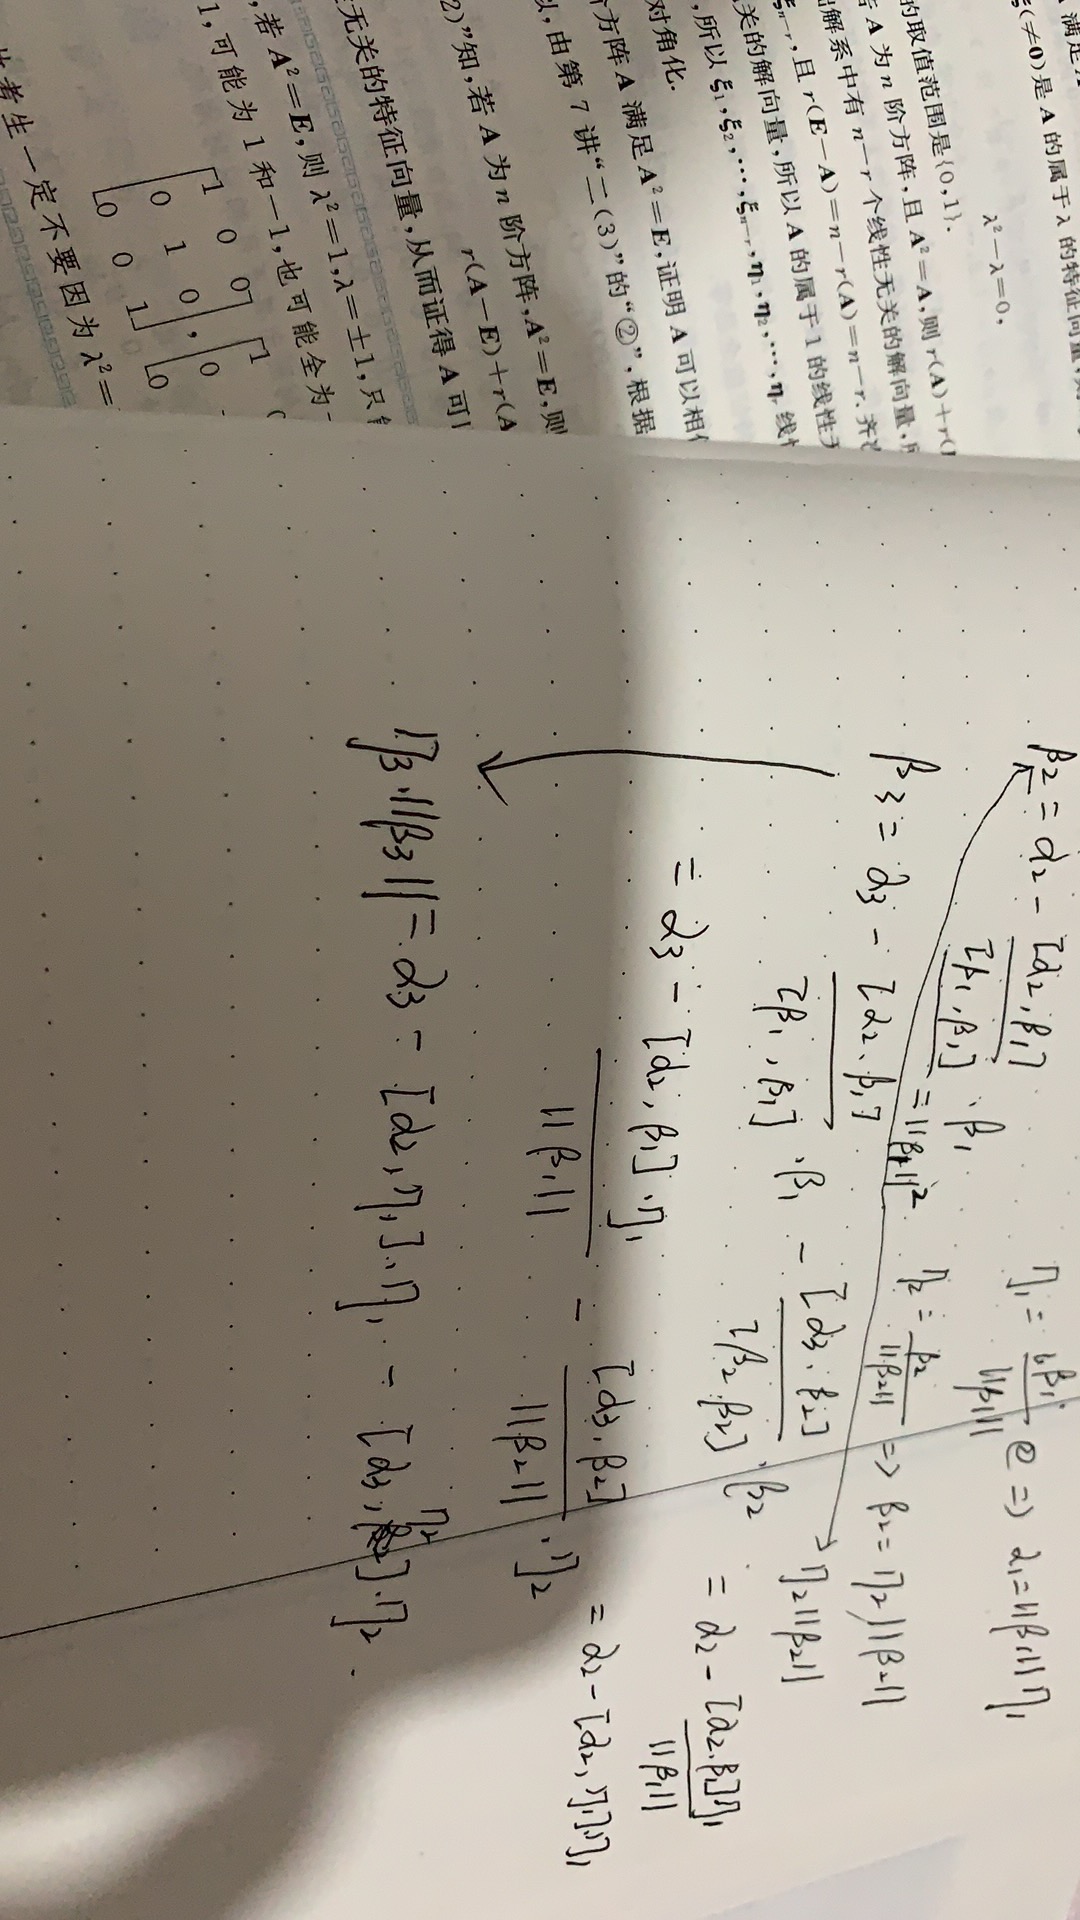 满足
ξ(≠0)是A的属于λ的特征向量
λ²-λ=0,
的取值范围是{0,1}.
A为n阶方阵,且A²=A,则r(A)+r(
解系中有n-r个线性无关的解向量,
ξₙ₋ᵣ,且r(E-A)=n-r(A)=n-r.齐
关的解向量,所以A的属于1的线性无
,所以ξ₁,ξ₂,…,ξₙ₋ᵣ,η₁,η₂,…,ηᵣ线
对角化.
方阵A满足A²=E,证明A可以相
,由第7讲“二(3)”的“②”,根据
2)”知,若A为n阶方阵,A²=E,则
r(A-E)+r(A
无关的特征向量,从而证得A可
,若A²=E,则λ²=1,λ=±1,只
1,可能为1和-1,也可能全为-
[1 0 0
0 1 0
0 0 1], [1
0
0
考生一定不要因为λ²=
β₂=α₂-[α₂,β₁]/[β₁,β₁]·β₁
=||β₁||²
η₁=β₁/||β₁|| ⇒ α₁=||β₁||η₁
η₂=β₂/||β₂|| ⇒ β₂=η₂||β₂||
β₃=α₃-[α₂,β₁]/[β₁,β₁]·β₁-[α₃,β₂]/[β₂,β₂]·β₂
η₂||β₂||
=α₂-[α₂,β₁]η₁/||β₁||
=α₃-[α₂,β₁]·η₁/||β₁||-[α₃,β₂]/||β₂||·η₂
=α₂-[α₂,η₁]η₁
η₃·||β₃||=α₃-[α₂,η₁]·η₁-[α₃,η₂]·η₂.